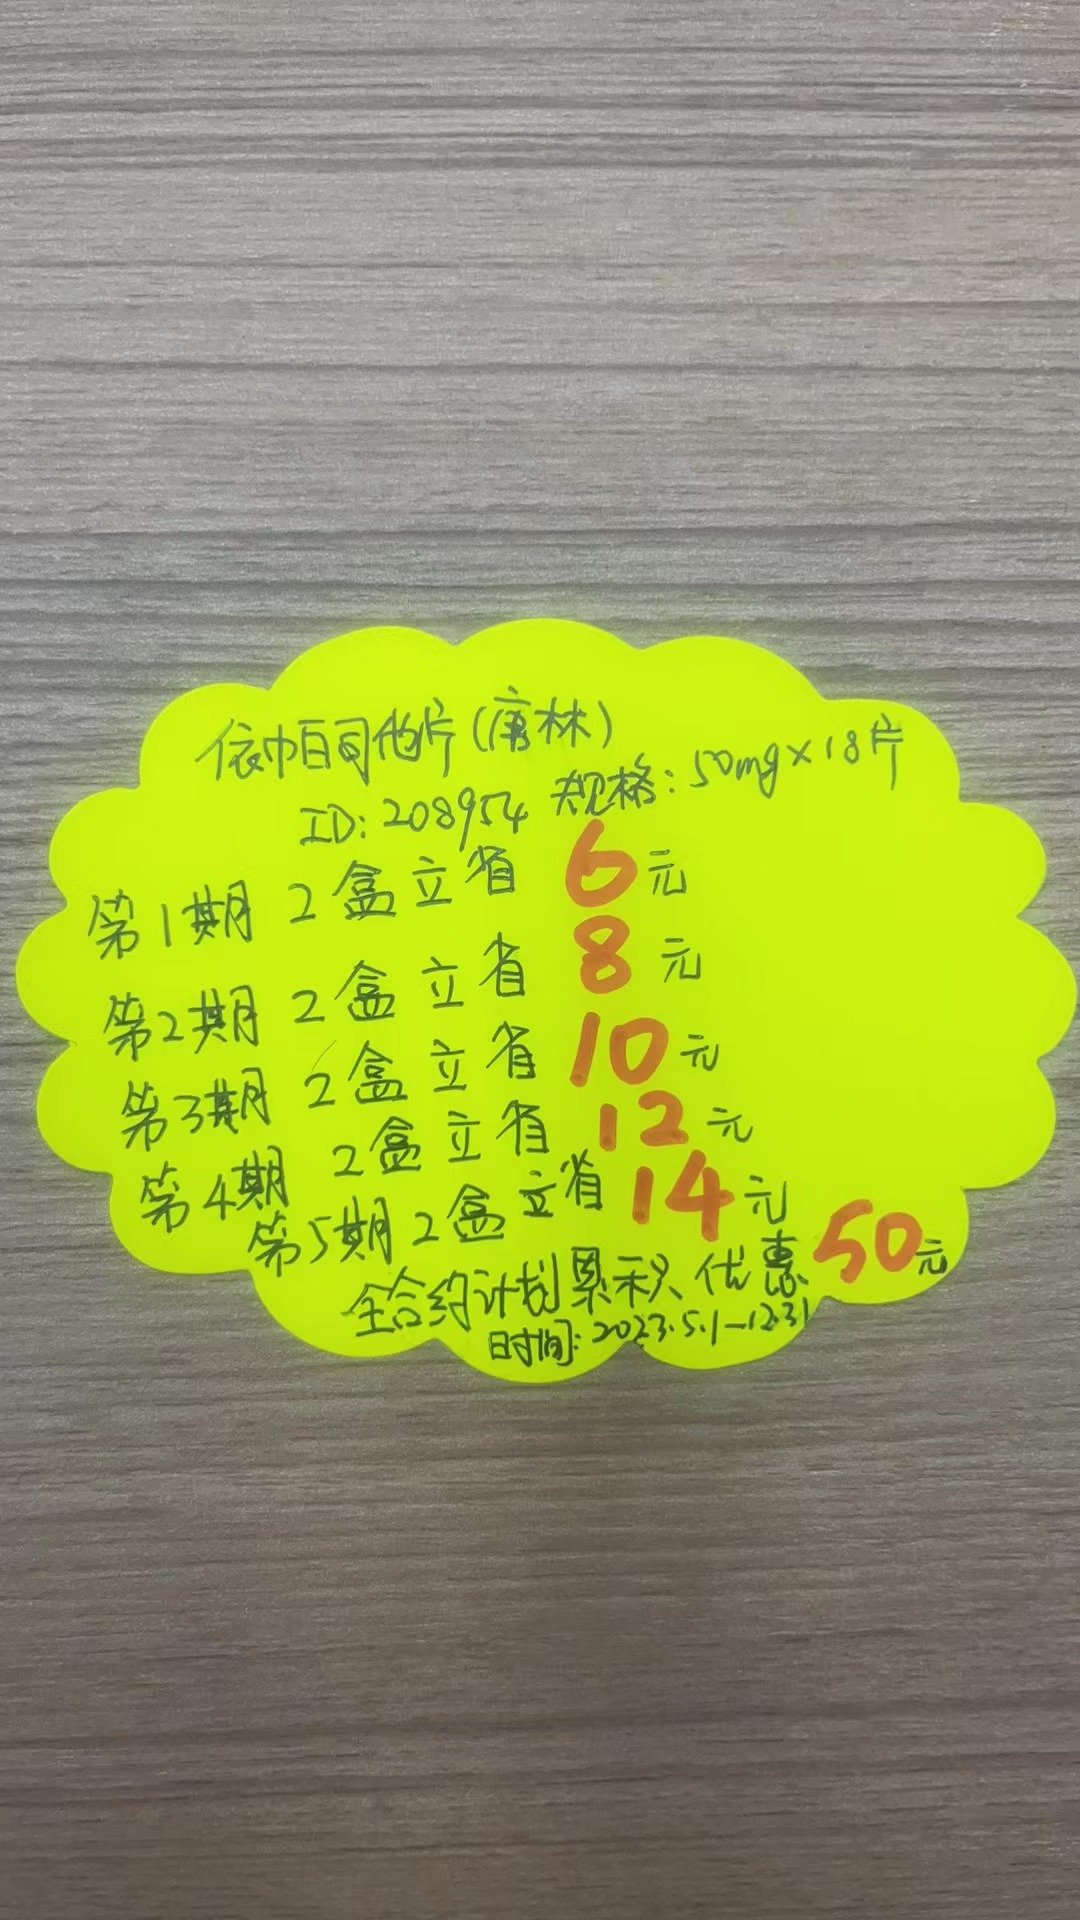 依帕司他片(唐林)
ID:208954 规格:50mg×18片
第1期 2盒立省 6元
第2期 2盒立省 8元
第3期 2盒立省 10元
第4期 2盒立省 12元
第5期 2盒立省 14元
全合约计划累积优惠50元
时间:2023.5.1-12.31